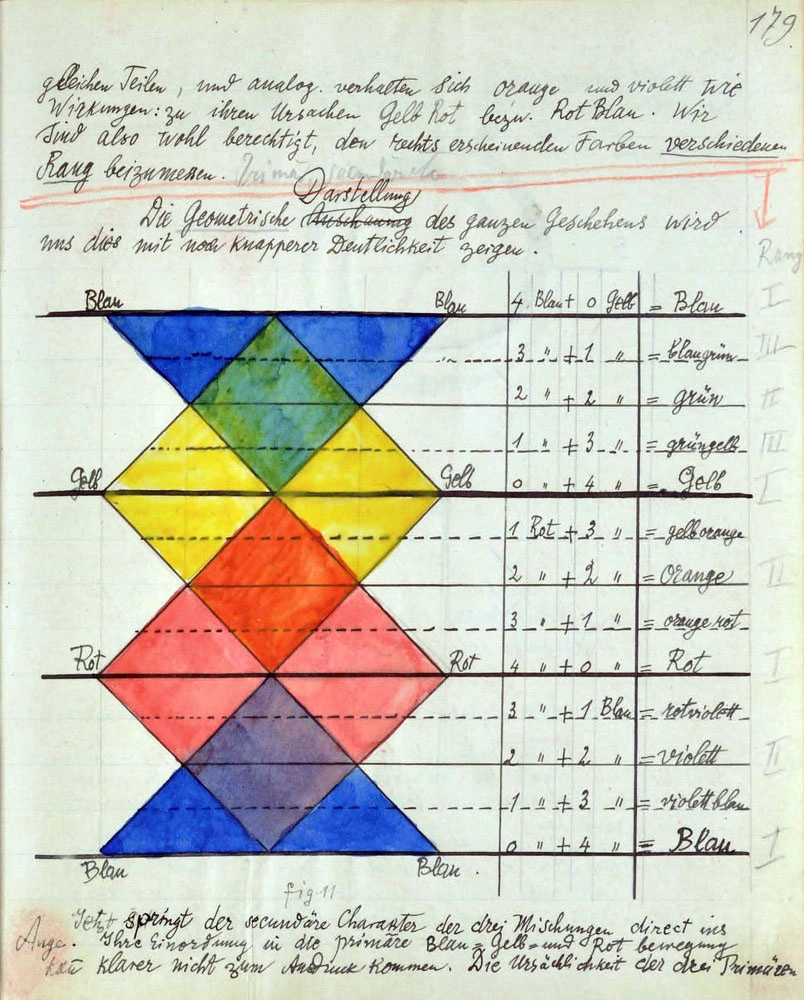 179.
gleichen Teilen, und analog. verhalten sich orange und violett wie
Wirkungen: zu ihren Ursachen Gelb Rot bezw. Rot Blau. Wir
sind also wohl berechtigt, den rechts erscheinenden Farben verschiedenen
Rang beizumessen.
Darstellung
Die Geometrische Anschauung des ganzen Geschehens wird
uns dies mit noch knapperer Deutlichkeit zeigen.
Rang
Blau Blau 4 Blau + 0 Gelb = Blau I
3 " + 1 " = blaugrün III
2 " + 2 " = grün II
1 " + 3 " = grüngelb III
Gelb Gelb 0 " + 4 " = Gelb I
1 Rot + 3 " = gelborange
2 " + 2 " = Orange II
3 " + 1 " = orange rot
Rot Rot 4 " + 0 " = Rot I
3 " + 1 Blau = rotviolett
2 " + 2 " = violett II
1 " + 3 " = violettblau
0 " + 4 " = Blau I
Blau Blau.
fig 11
Jetzt springt der secundäre Charakter der drei Mischungen direct ins
Auge. Ihre Einordnung in die primäre Blau= Gelb= und Rot bewegung
kan klarer nicht zum Ausdruck kommen. Die Ursächlichkeit der drei Primären